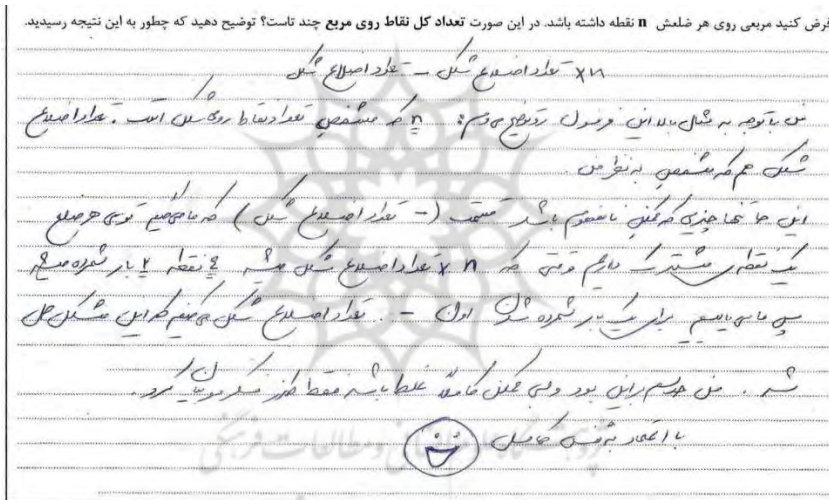 فرض کنید مربعی روی هر ضلعش n نقطه داشته باشد. در این صورت تعداد کل نقاط روی مربع چند تاست؟ توضیح دهید که چطور به این نتیجه رسیدید.
n× تعداد اضلاع شکل – تعداد اضلاع شکل
من با توجه به مثال بالا این فرمول رو توضیح می‌دم: n که مشخص تعداد نقاط روی شکل است. تعداد اضلاع
شکل هم که مشخص به نظر من.
این جا تنها چیزی که ممکن نامفهوم باشد قسمت (– تعداد اضلاع شکل) که ما می‌گیم توی هر ضلع
یک نقطه‌ی مشترک داریم وقتی که n × تعداد اضلاع شکل میشه ۴ نقطه ۲ بار شمرده میشه
پس ما می‌یایم برای یک بار شمرده شدن اول – تعداد اضلاع شکل می‌کنیم که این مشکل حل
شه. من حدسم این بود ولی ممکن کاملاً غلط باشه فقط طرز فکرمو بیان کرد.
با اعتماد به نفس کامل
پژوهشگاه علوم انسانی و مطالعات فرهنگی